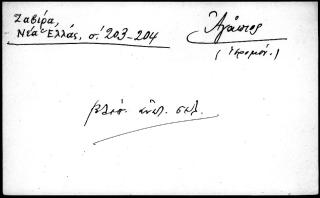 Ζαβίρα,
Νέα Ἑλλάς, σ. 203-204
Ἀγάπιος
(ἱερομόν.)
βλέπ. ἀνωτ. σελ.